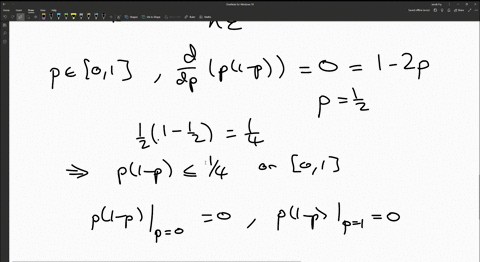 nε
p∈[0,1] , d/dp (p(1-p)) = 0 = 1-2p
p = 1/2
1/2(1-1/2) = 1/4
⇒ p(1-p) ≤ 1/4 on [0,1]
p(1-p)|p=0 = 0 , p(1-p)|p=1 = 0